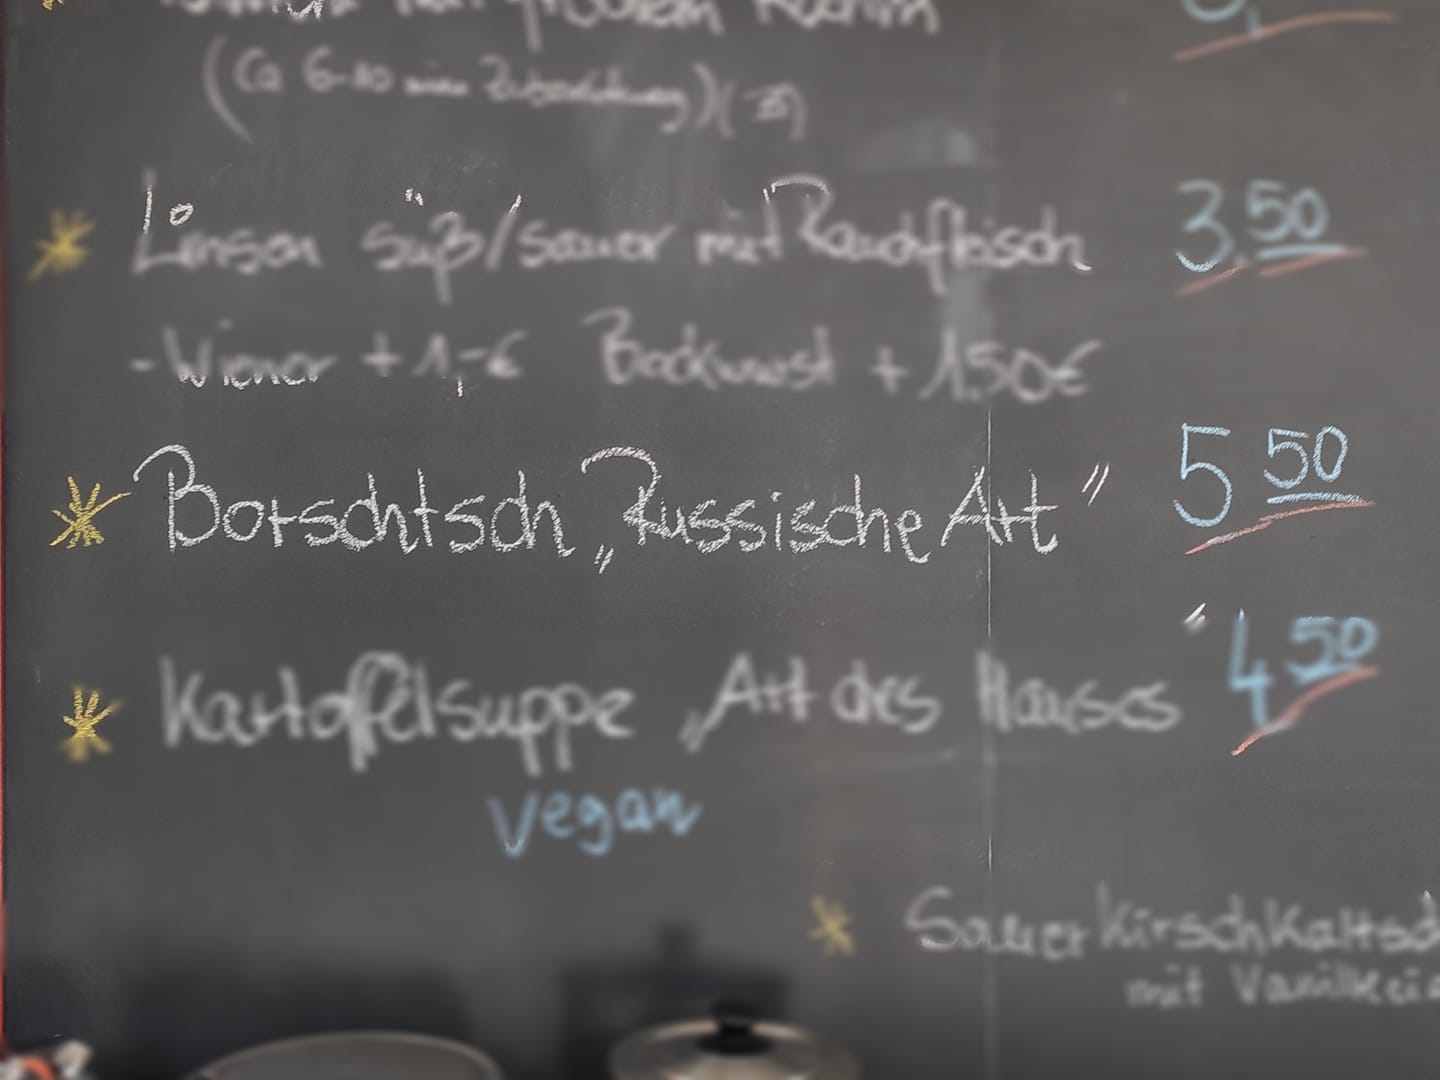 (Ca 6-10 min Zubereitung) (3)
* Linsen süß/sauer mit Rauchfleisch 3.50
- Wiener + 1,-€ Bockwurst + 1.50€
* Borschtsch „Russische Art" 5 50
* Kartoffelsuppe „Art des Hauses" 4 50
vegan
* Sauerkirschkaltsch
mit Vanilleeis